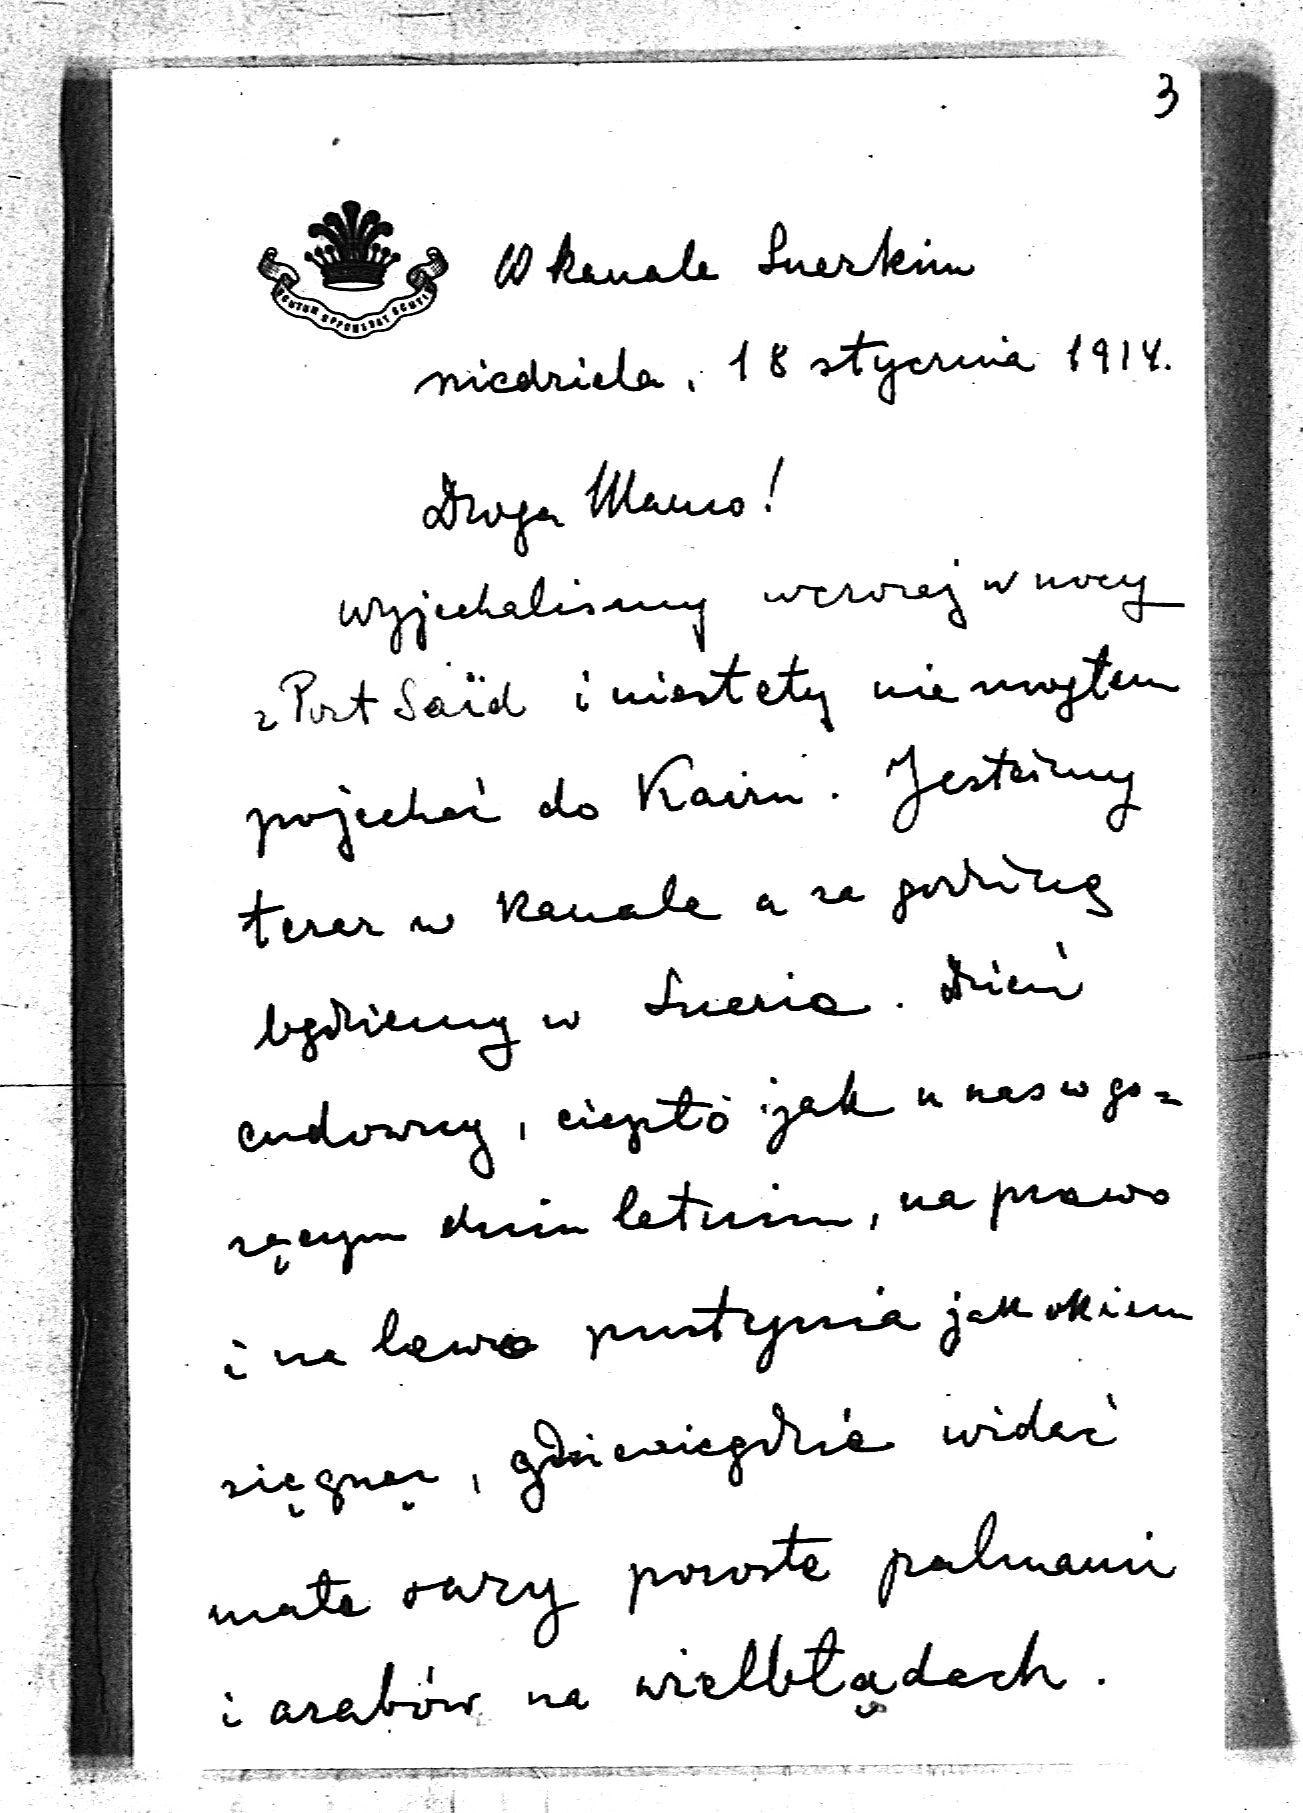 3
W kanale Sueskim
niedziela, 18 stycznia 1914.
Droga Mamo!
wyjechalismy wczoraj w nocy
z Port Saïd i niestety nie mogłem
pojechać do Kairu. Jesteśmy
teraz w kanale a za godzinę
będziemy w Suezie. Dzień
cudowny, ciepło jak u nas w go=
rącym dniu letnim, na prawo
i na lewo pustynia jak okiem
sięgnąć, gdzieniegdzie widać
małe oazy porosłe palmami
i arabów na wielbłądach.